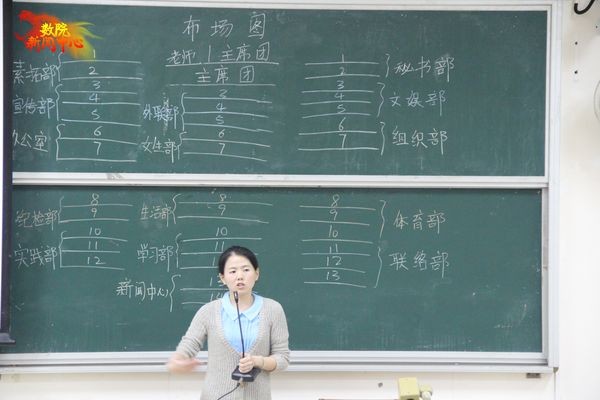 数院
新闻中心
布场图
老师 主席团
主席团
素拓部 1 2
宣传部 3 4 5
办公室 6 7
外联部 3 4 5
文生部 6 7
1 2 秘书部
3 4 5 文娱部
6 7 组织部
纪检部 8 9
实践部 10 11 12
生活部 8 9
学习部 10 11
新闻中心
8 9 10 体育部
11 12 13 联络部